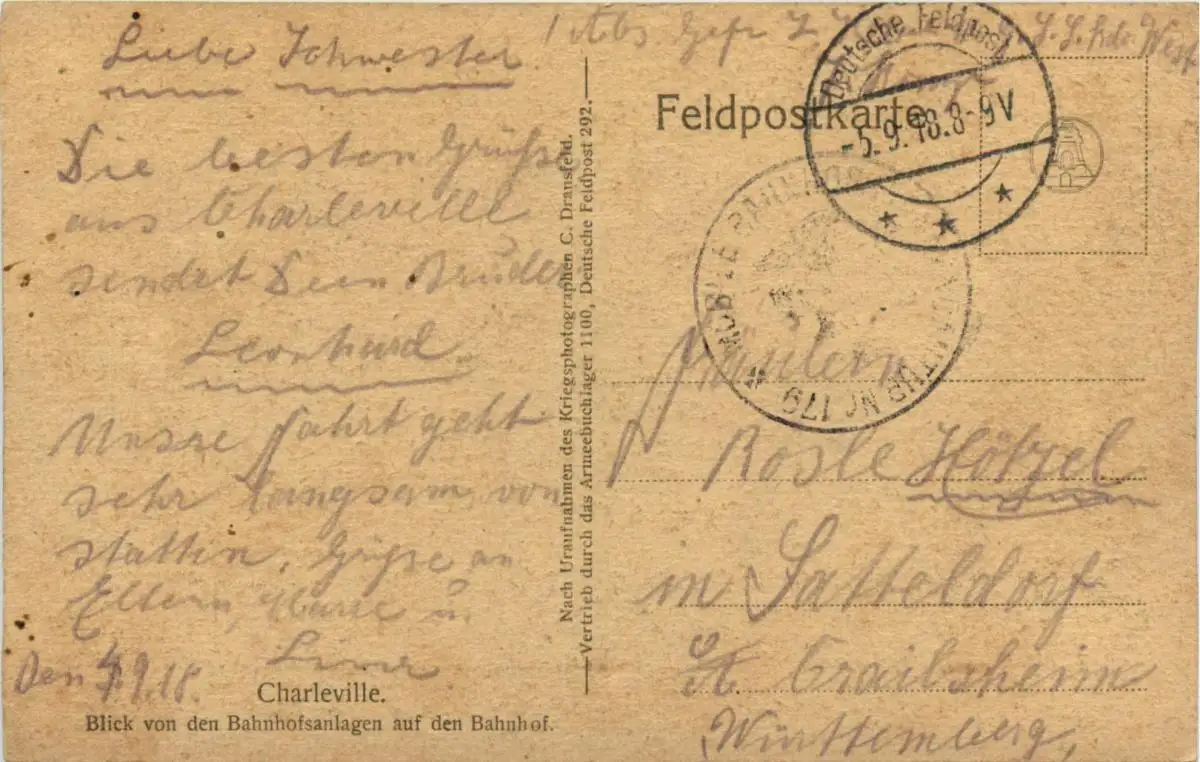 Liebe Schwester
Die besten Grüße
aus Charleville
sendet Dein Bruder
Leonhard.
Unsre Fahrt geht
sehr langsam von
statten. Grüße an
Eltern, Marie u.
Lina
Den 4.9.18.
Charleville.
Blick von den Bahnhofsanlagen auf den Bahnhof.
Nach Uraufnahmen des Kriegsphotographen C. Dransfeld.
Vertrieb durch das Armeebuchlager 1100, Deutsche Feldpost 292.
Abs Gefr
Feldpostkarte
Deutsche Feldpost
-5.9.18.8-9V
MOBILE BAHNHOFS
Nr 179
Fräulein
Rosle Hötzel
in Satteldorf
O/A Crailsheim
Württemberg,